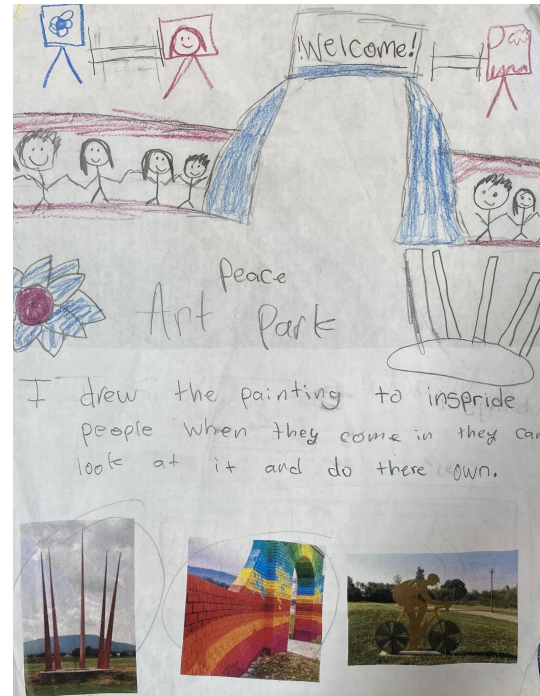 !Welcome!
Peace
Art Park
I drew the painting to inspride
people when they come in they can
look at it and do there own.